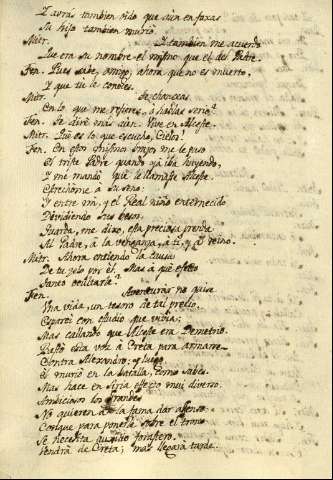 Y avrás tambien oido que aun en faxas
Su hijo tambien murió.
Mitr. Y tambien me acuerdo
Que era su nombre el mismo que el del Padre.
Fen. Pues sabe, amigo, ahora que no es muerto,
Y que tu le conoces.
Mitr. De chanzas
En lo que me refieres, ó hablas serio?
Fen. Te diré mas aun: Vive en Alceste.
Mitr. Qué es lo que escucho, Cielos!
Fen. En estos mismos brazos me le puso
El triste Padre quando ya iba huyendo,
Y me mandó que le llamase Alceste.
Estrechóme á su seno;
Y entre mi, y el Real niño enternecido
Dividiendo sus besos:
Guarda, me dixo, esta preciosa prenda
Al Padre, á la venganza, á ti, y al reino.
Mitr. Ahora entiendo la causa
De tu zelo por él. Mas a qué efecto
Tanto ocultarla?
Fen. Aventurar no quise
Una vida, un tesoro de tal precio.
Esparcí con estudio que vivia;
Mas callando que Alceste era Demetrio.
Bastó esta voz á Creta para armarse
Contra Alexandro; y luego
El murió en la batalla, como sabes.
Mas hace en Siria efecto mui diverso.
Ambiciosos los Grandes
No quieren á la fama dar asenso.
Conque para ponerle sobre el trono
Se necesita auxilio forastero.
Vendrá de Creta; mas llegará tarde.